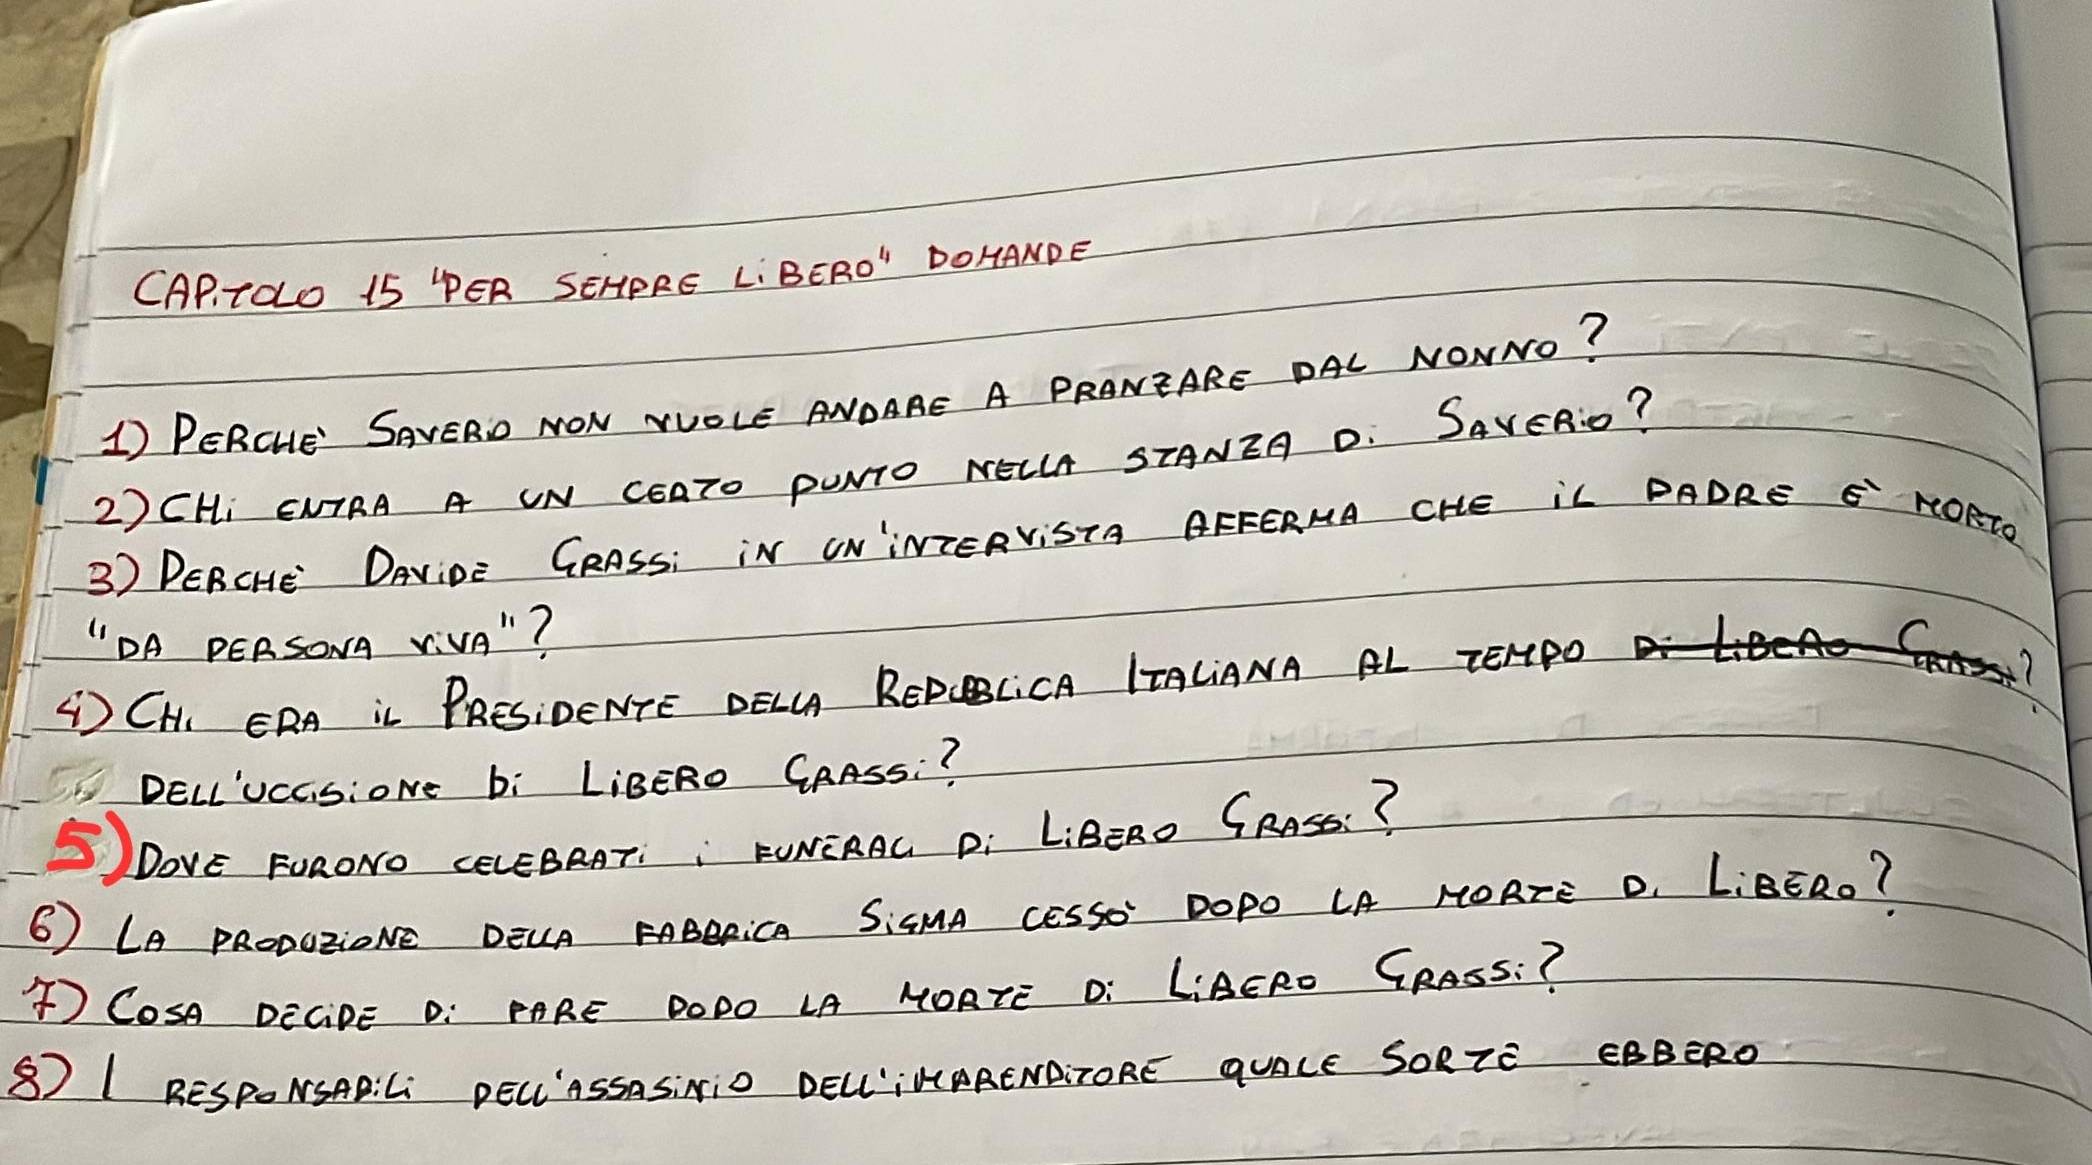 CAPITOLO 15 "PER SEMPRE LIBERO" DOMANDE
1) PERCHE' SAVERIO NON VUOLE ANDARE A PRANZARE DAL NONNO?
2) CHI ENTRA A UN CERTO PUNTO NELLA STANZA DI SAVERIO?
3) PERCHE' DAVIDE GRASSI IN UN'INTERVISTA AFFERMA CHE IL PADRE E' MORTO
"DA PERSONA VIVA"?
4) CHI ERA IL PRESIDENTE DELLA REPUBBLICA ITALIANA AL TEMPO DI LIBERO GRASSI?
DELL'UCCISIONE DI LIBERO GRASSI?
5) DOVE FURONO CELEBRATI I FUNERALI DI LIBERO GRASSI?
6) LA PRODUZIONE DELLA FABBRICA SIGMA CESSO' DOPO LA MORTE DI LIBERO?
7) COSA DECIDE DI FARE DOPO LA MORTE DI LIBERO GRASSI?
8) I RESPONSABILI DELL'ASSASINIO DELL'IMPRENDITORE QUALE SORTE EBBERO